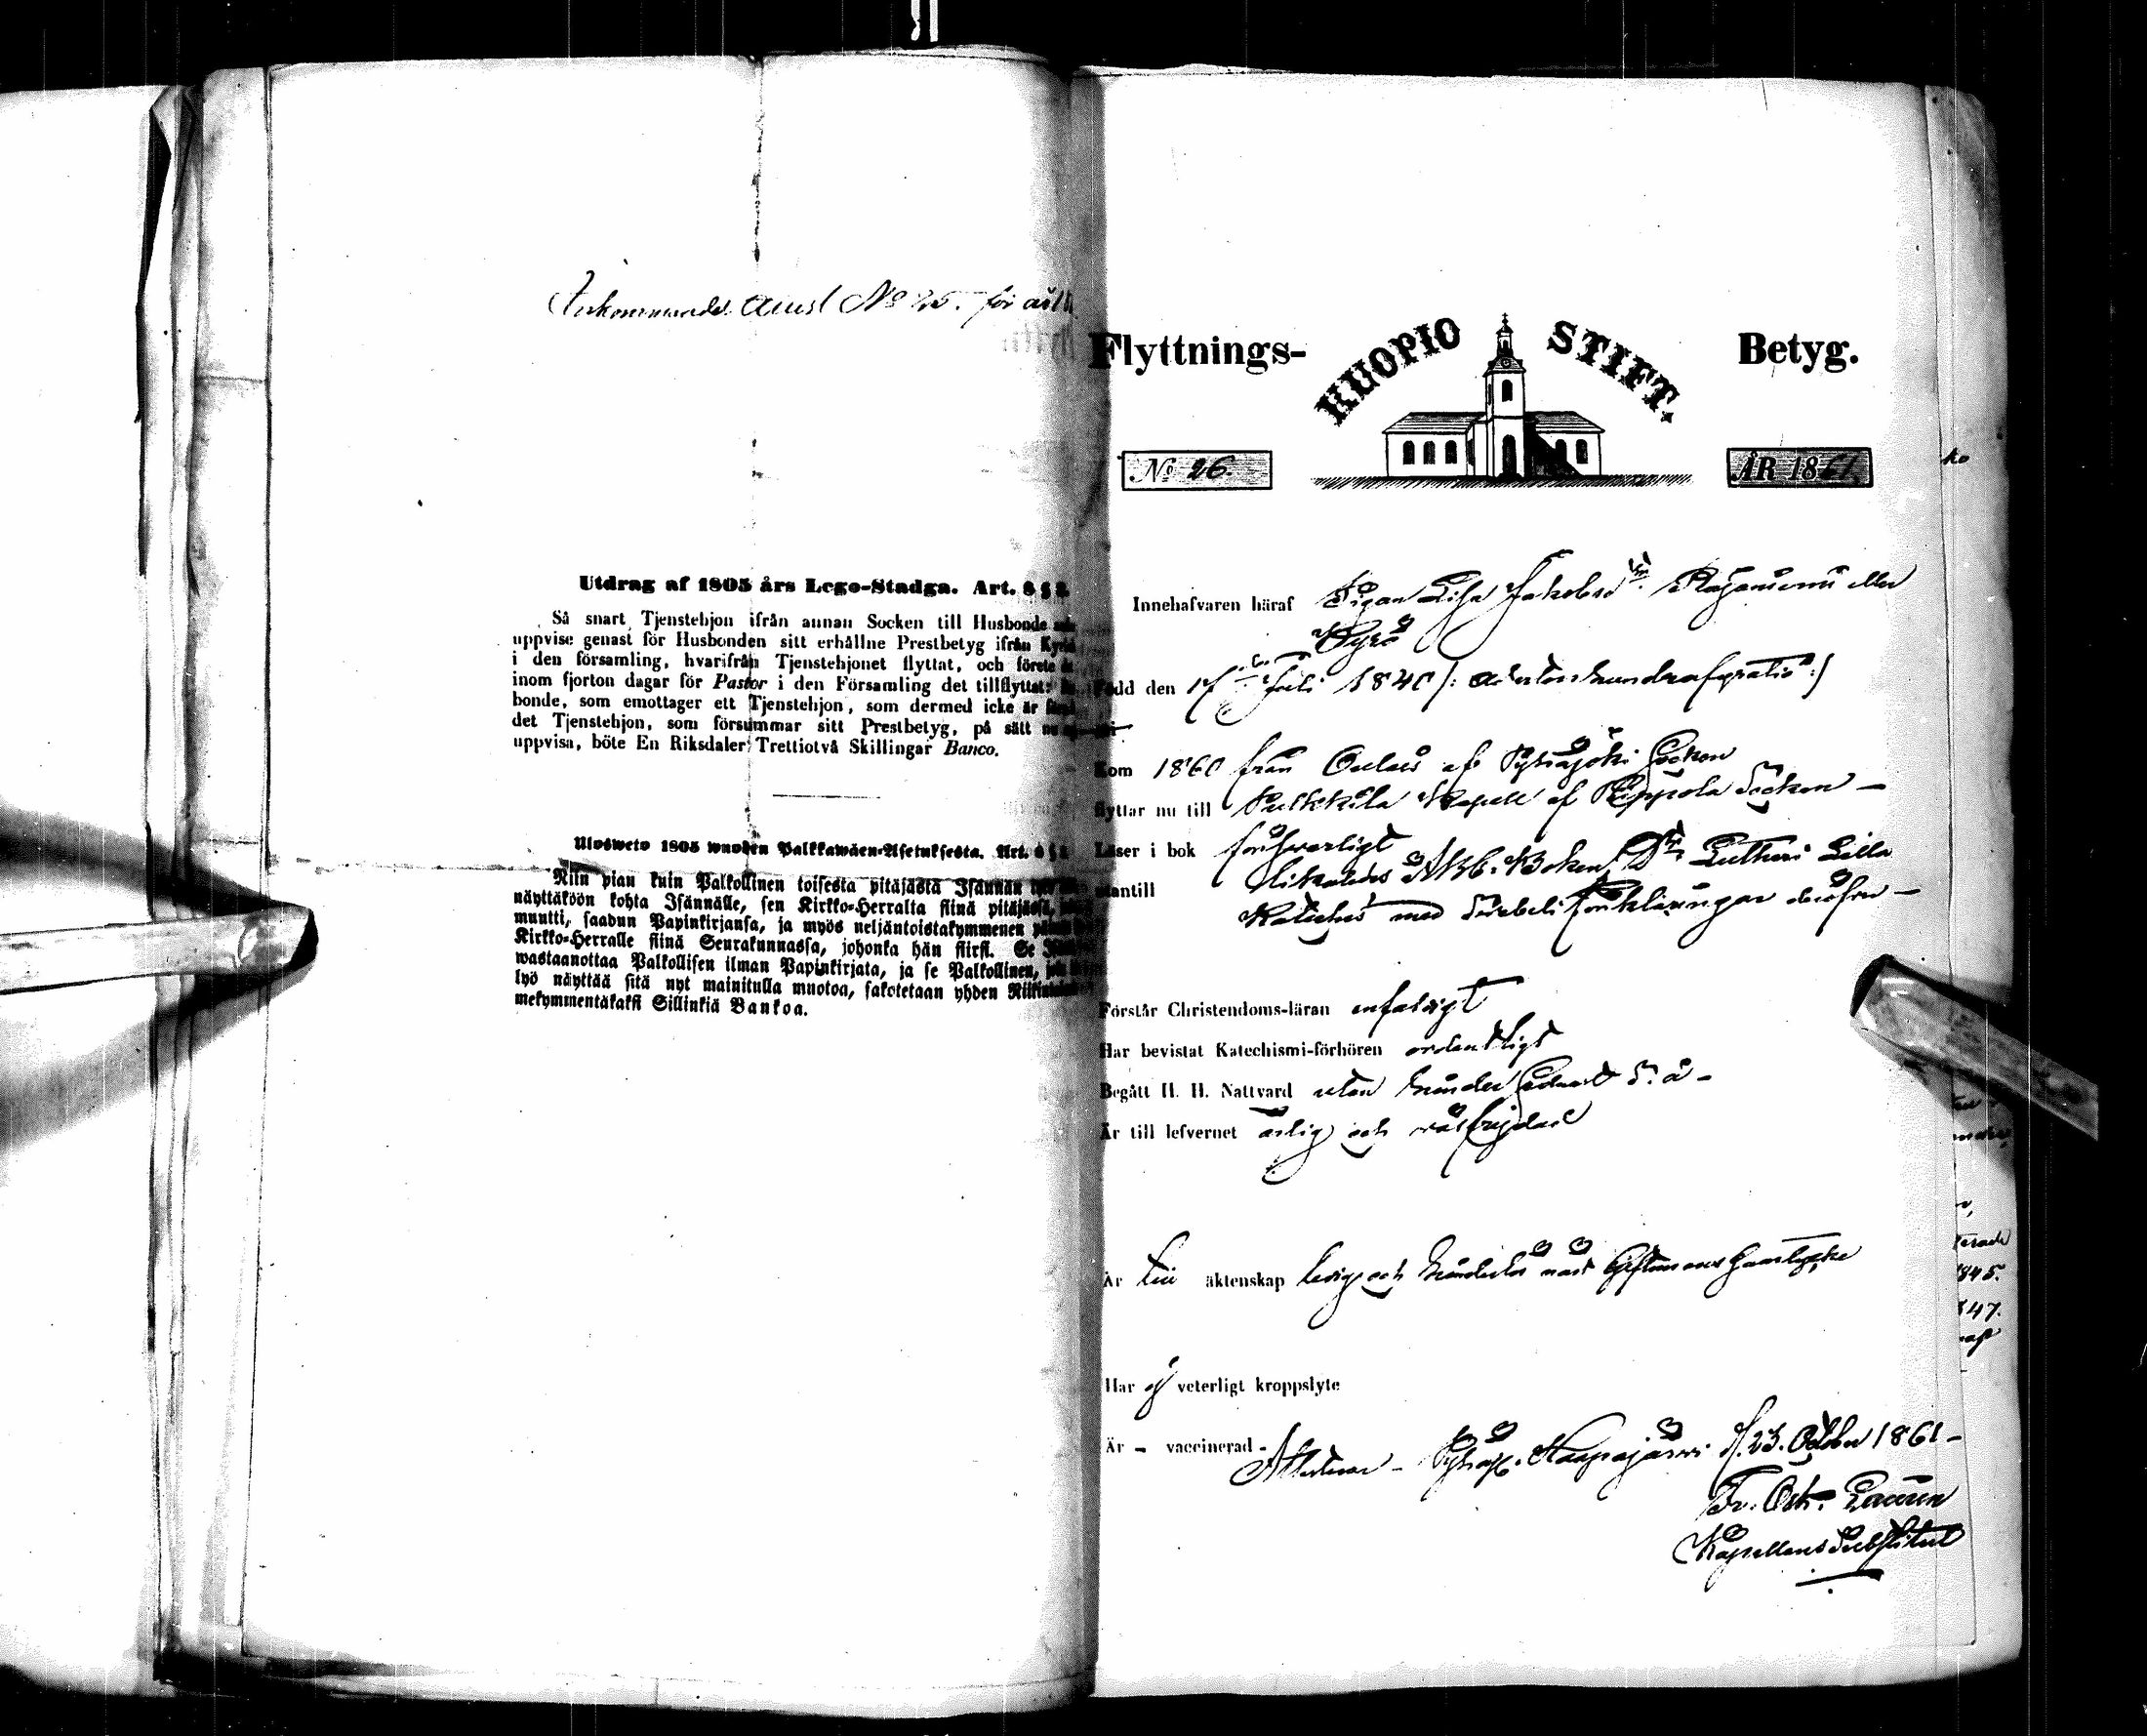 Inkommande attest No 25. för år 18
Utdrag af 1805 års Lego-Stadga. Art. 8 § 2.
Så snart Tjenstehjon ifrån annan Socken till Husbonde
uppvise genast för Husbonden sitt erhållne Prestbetyg ifrån Kyrko
i den församling, hvarifrån Tjenstehjonet flyttat, och förete
inom fjorton dagar för Pastor i den Församling det tillflyttat:
bonde, som emottager ett Tjenstehjon, som dermed icke är
det Tjenstehjon, som försummar sitt Prestbetyg, på sätt nu
uppvisa, böte En Riksdaler Trettiotvå Skillingar Banco.
Ulosweto 1805 wuoden Palkkawäen-Asetuksesta. Art.
Niin pian kuin Palkollinen toisesta pitäjästä Isännän
näyttäköön kohta Isännälle, sen Kirkko-Herralta siinä pitäjässä,
muutti, saadun Papinkirjansa, ja myös neljäntoistakymmenen
Kirkko-Herralle siinä Seurakunnassa, johonka hän siirsi. Se
wastaanottaa Palkollisen ilman Papinkirjata, ja se Palkollinen,
lyö näyttää sitä nyt mainitulla muotoa, sakotetaan yhden
mekymmentäkaksi Sillinkiä Bankoa.
Flyttnings- KUOPIO STIFT. Betyg.
No 26. ÅR 1861
Innehafvaren häraf Pigan Lisa Jakobsdr Rajaniemi eller
Pyrö
Född den 17 Juli 1840 /: adertonhundrafyratio :/
Kom 1860 från Oulais af Pyhäjoki Socken
flyttar nu till Pulkkila Kapell af Piippola Socken –
Läser i bok försvarligt
utantill likaledes ABC-Boken, Dr Lutheri Lilla
Kateches med Svebeli förklaringar deröfver –
Förstår Christendoms-läran enfaldigt
Har bevistat Katechismi-förhören ordentligt
Begått H. H. Nattvard utan hinder sednast d. å –
Är till lefvernet ärlig och välfrejdad
Är till äktenskap ledig och hinderlös med Giftomans samtycke
Har ej veterligt kroppslyte
Är – vaccinerad –
Attesterar – Haapajärvi d. 23. October 1861 –
Fr. Osk. Laurén
Kapellans Substitut
1845.